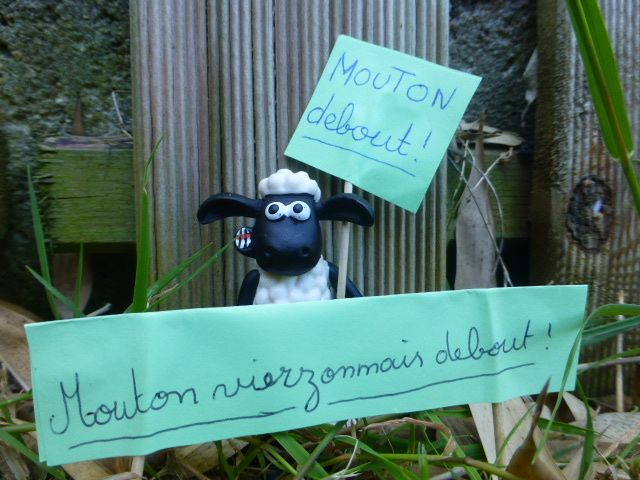 MOUTON
debout !
Mouton vierzonnais debout !